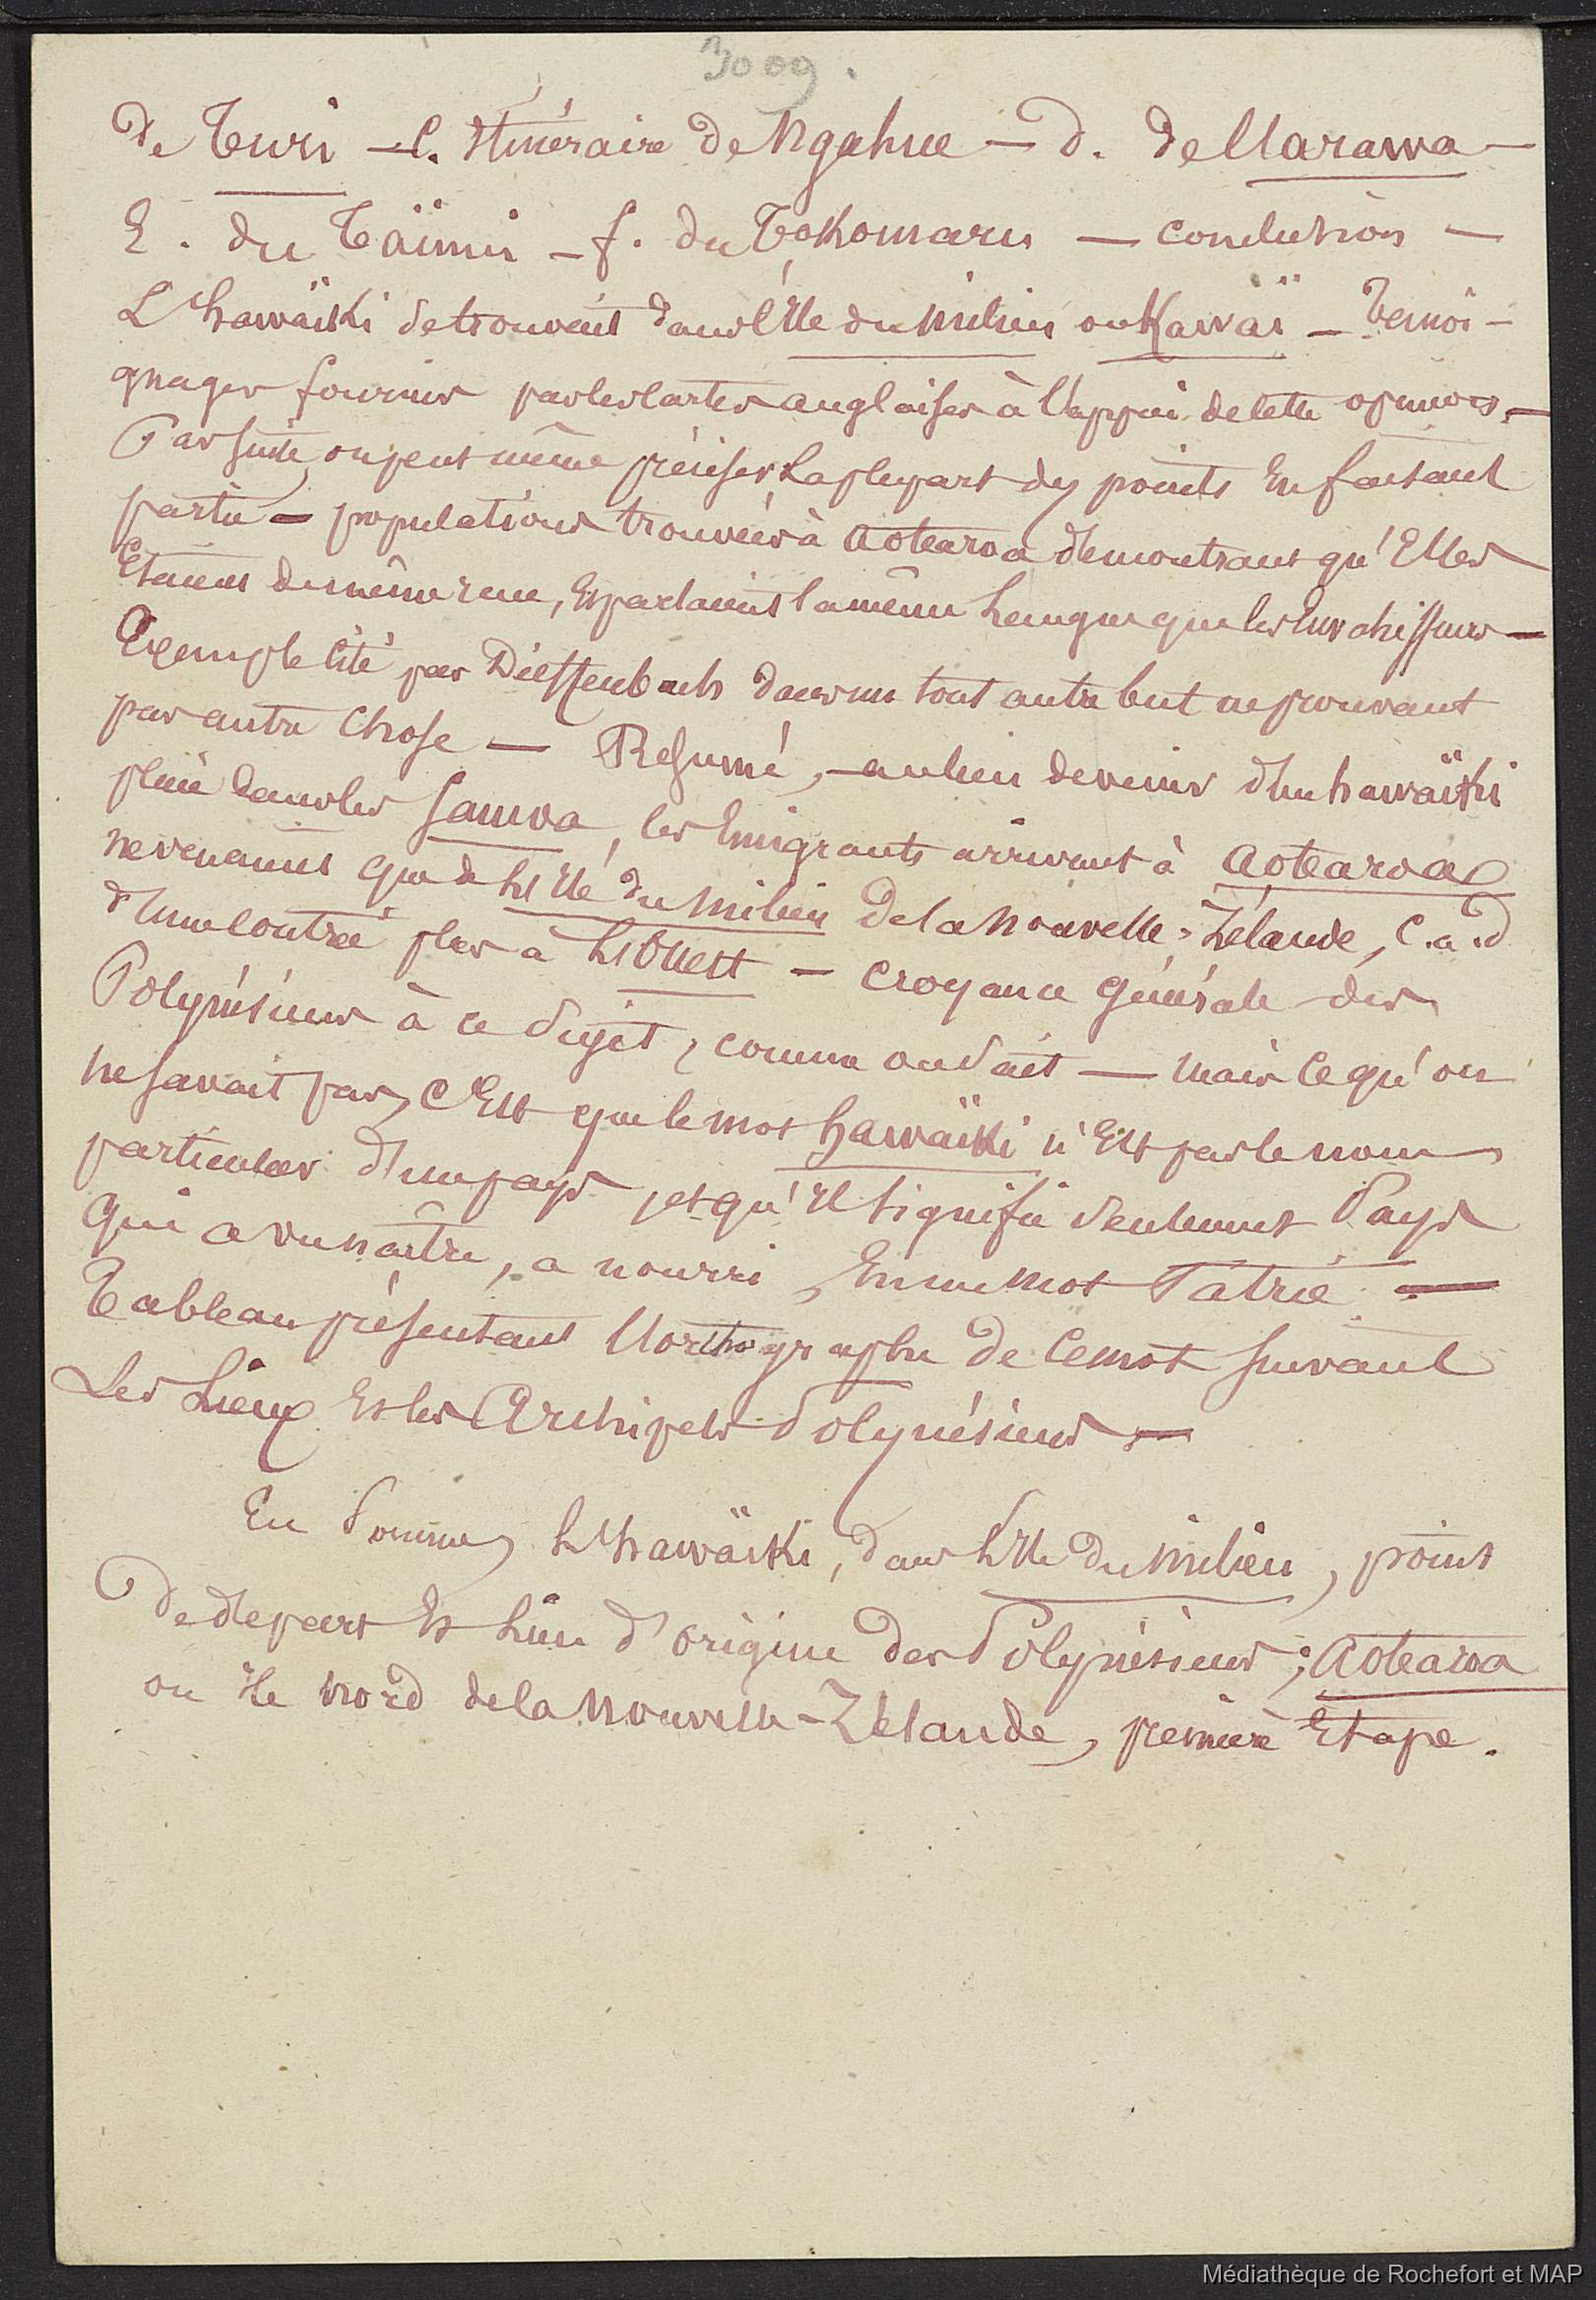 3009.
de Turi — C. Itinéraire de Ngahue — D. de l'Arawa —
E. du Täinui — f. du Tokomaru — conclusion —
L'hawäiki se trouvait dans l'île du milieu ou Kawäi — Témoi-
gnages fournis par les cartes anglaises à l'appui de cette opinion. —
Par suite, on peut même préciser la plupart des points En faisant
partie — populations trouvées à Aotearoa démontrant qu'Elles
Etaient de même race, Et parlaient la même Langue que les Envahisseurs —
Exemple Cité par Dieffenbach dans un tout autre but ne prouvant
pas autre Chose — Résumé, — au lieu de venir d'un hawäiki
placé dans les Samoa, les Emigrants arrivant à Aotearoa
ne venaient que de L'Ile du Milieu de la Nouvelle-Zélande, C.a.d
d'une Contrée plus à L'Ouest — Croyance Générale des
Polynésiens à ce Sujet, comme on Sait — mais Ce qu'on
ne savait pas, C'Est que le mot hawäiki n'Est pas le nom
particulier d'un pays, et qu'Il signifie Seulement Pays
Qui a vu naître, a nourri, En un mot Patrie —
Tableau présentant l'orthographe de Ce mot suivant
Les Lieux Et les Archipels Polynésiens —
En Somme, L'hawäiki, dans L'Ile du Milieu, point
De départ Et Lieu d'origine des Polynésiens; Aotearoa
ou île Nord de la Nouvelle-Zélande, première Etape.
Médiathèque de Rochefort et MAP